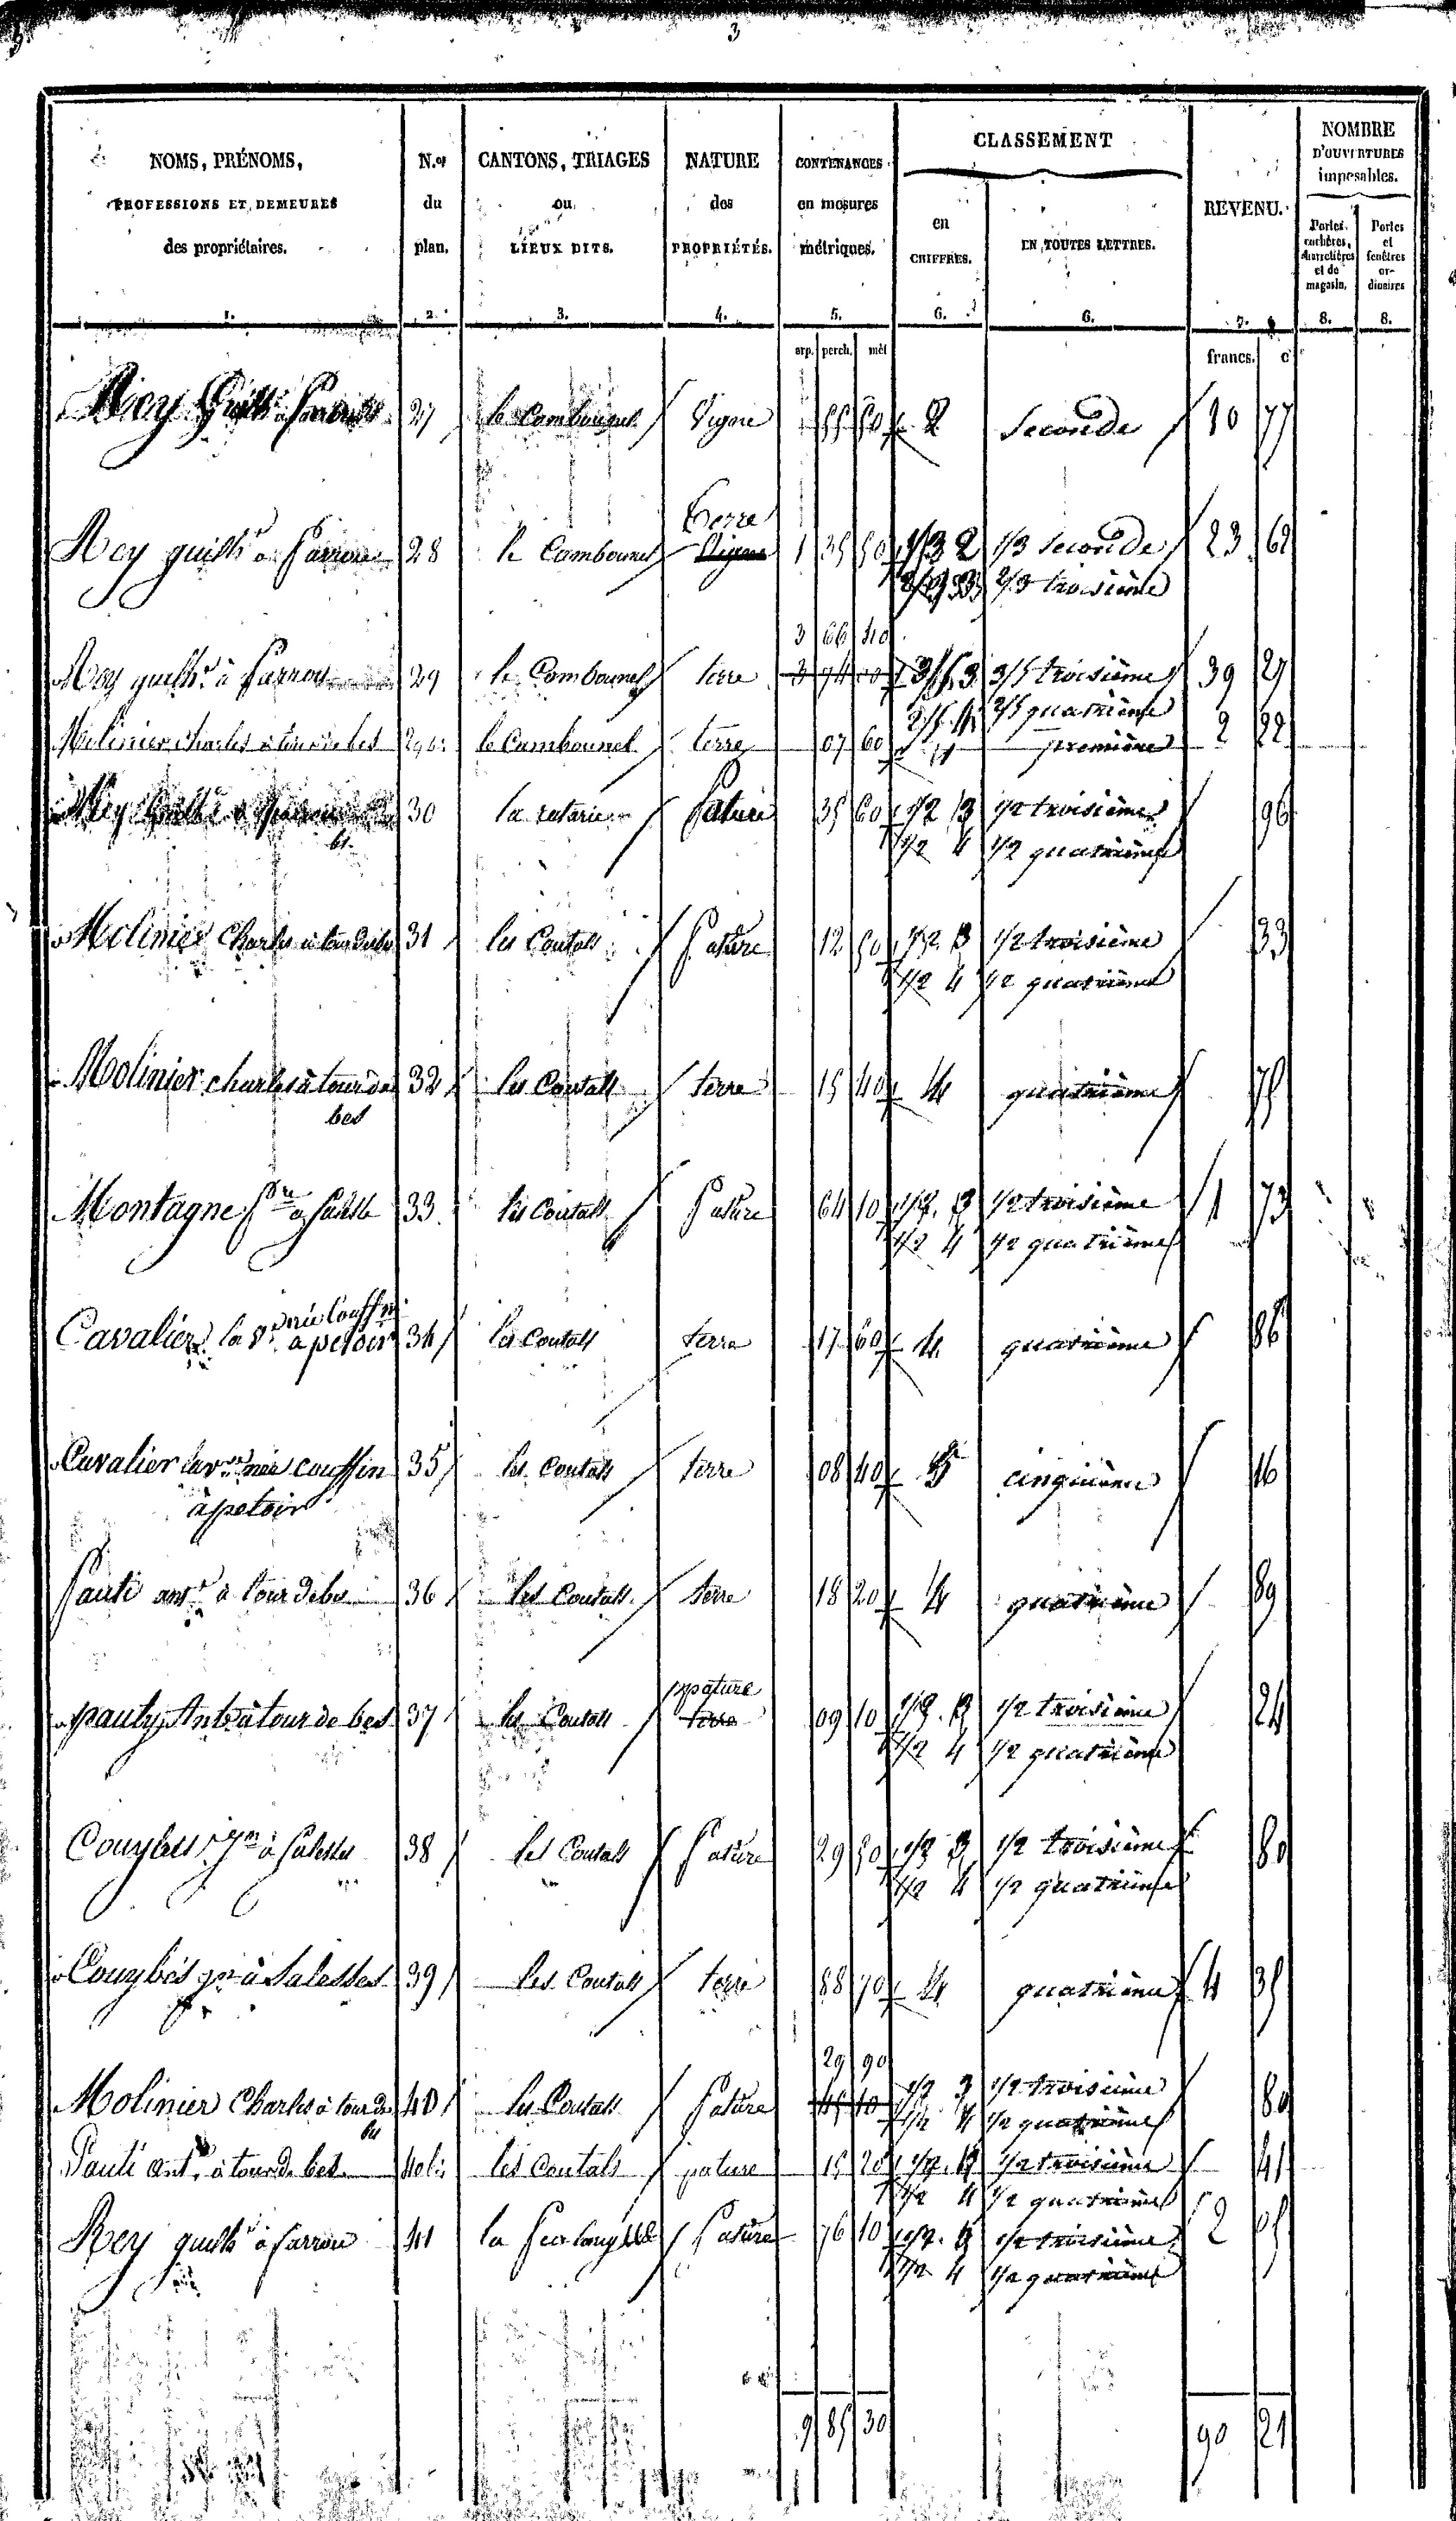 3
NOMS, PRÉNOMS,
PROFESSIONS ET DEMEURES
des propriétaires.
1.
N.os
du
plan.
2.
CANTONS, TRIAGES
ou
LIEUX DITS.
3.
NATURE
des
PROPRIÉTÉS.
4.
CONTENANCES
en mesures
métriques.
5.
CLASSEMENT
en
CHIFFRES.
6.
EN TOUTES LETTRES.
6.
REVENU.
7.
NOMBRE
D'OUVERTURES
imposables.
Portes
cochères,
charretières
et de
magasin.
8.
Portes
et
fenêtres
or-
dinaires
8.
arp. perch. mèt francs. c
Rey Guill.e à 27 le Combounel Vigne 55 50 2 Seconde 10 77
Terre
Rey guill.e à 28 le Combounel Vigne 1 35 50 1/3 2 1/3 seconde 23 62
2/3 3 2/3 troisième
3 66 40
Rey guill.e à 29 le Combounel terre 3 74 3/5 3 3/5 troisième 39 27
2/5 4 2/5 quatrième
Molinier charles à tour de bes 29 bis le Combounel terre 07 60 1 première 2 22
Rey 30 la pature 35 60 1/2 3 1/2 troisième 96
1/2 4 1/2 quatrième
Molinier Charles à tour de bes 31 les Coutals pature 12 50 1/2 3 1/2 troisième 33
1/2 4 1/2 quatrième
Molinier charles à tour de 32 les Coutals terre 15 40 4 quatrième 75
bes
Montagne à 33 les Coutals pature 64 10 1/2 3 1/2 troisième 1 73
1/2 4 1/2 quatrième
née Couffin
Cavalier la v.e à petoir 34 les Coutals terre 17 60 4 quatrième 86
Cavalier la v.ve née couffin 35 les Coutals terre 08 40 5 cinquième 16
à petoir
Pauti ant.e à tour de bes 36 les Coutals terre 18 20 4 quatrième 89
pature
pauty Ant.e à tour de bes 37 les Coutals terre 09 10 1/2 3 1/2 troisième 24
1/2 4 1/2 quatrième
Couybes à Salesses 38 les Coutals pature 29 50 1/2 3 1/2 troisième 80
1/2 4 1/2 quatrième
Couybès à Salesses 39 les Coutals terre 88 70 4 quatrième 4 35
29 90
Molinier Charles à tour de 40 les Coutals pature 45 10 1/2 3 1/2 troisième 80
bes 1/2 4 1/2 quatrième
Pauti ant.e à tour de bes 40 bis les coutals pature 15 20 1/2 3 1/2 troisième 41
1/2 4 1/2 quatrième
Rey guill.e à 41 la pature 76 10 1/2 3 1/2 troisième 2 05
1/2 4 1/2 quatrième
9 85 30 90 21